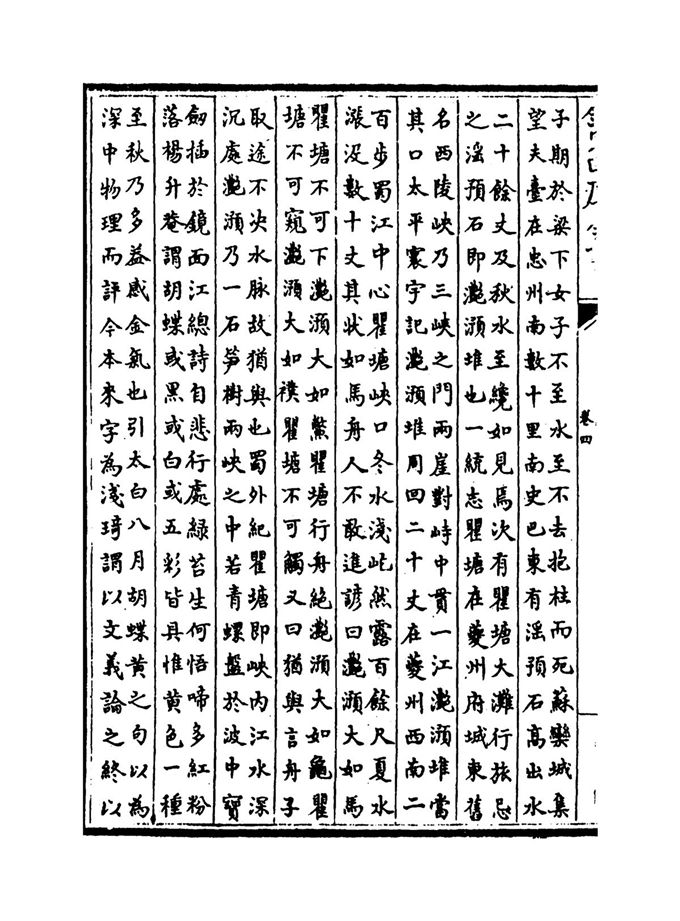 卷四
子期於梁下女子不至水至不去抱柱而死蘇欒城集
望夫臺在忠州南數十里南史巴東有淫預石高出水
二十餘丈及秋水至纔如見焉次有瞿塘大灘行旅忌
之淫預石即灩澦堆也一統志瞿塘在夔州府城東舊
名西陵峽乃三峽之門兩崖對峙中貫一江灩澦堆當
其口太平寰宇記灩澦堆周回二十丈在夔州西南二
百步蜀江中心瞿塘峽口冬水淺屹然露百餘尺夏水
漲没數十丈其狀如馬舟人不敢進諺曰灩澦大如馬
瞿塘不可下灩澦大如鱉瞿塘行舟絶灩澦大如龜瞿
塘不可窺灩澦大如襆瞿塘不可觸又曰猶與言舟子
取途不决水脉故猶與也蜀外紀瞿塘即峽内江水深
沉處灩澦乃一石筍樹兩峽之中若青螺盤於波中寶
劒插於鏡面江總詩自悲行處緑苔生何悟啼多紅粉
落楊升菴謂胡蝶或黑或白或五彩皆具惟黄色一種
至秋乃多益感金氣也引太白八月胡蝶黄之句以為
深中物理而評今本來字為淺琦謂以文義論之終以